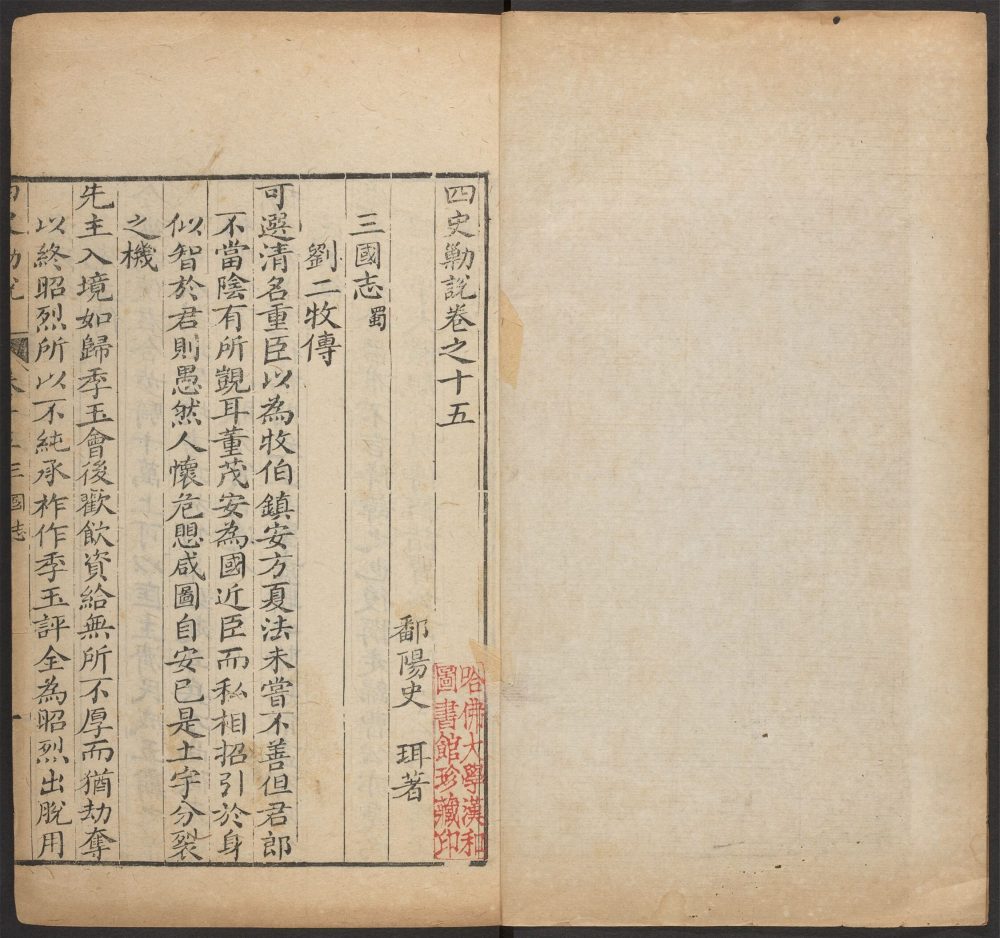 四史勦說卷之十五
鄱陽史　珥著
三國志蜀
劉二牧傳
可選清名重臣以為牧伯鎮安方夏法未嘗不善但君郎
不當陰有所覬耳董茂安為國近臣而私相招引於身
似智於君則愚然人懷危思咸圖自安已是土宇分裂
之機
先主入境如歸季玉會後歡飲資給無所不厚而猶劫奪
以終昭烈所以不純承祚作季玉評全為昭烈出脫用
三國志
一
哈佛大學漢和
圖書館珍藏印